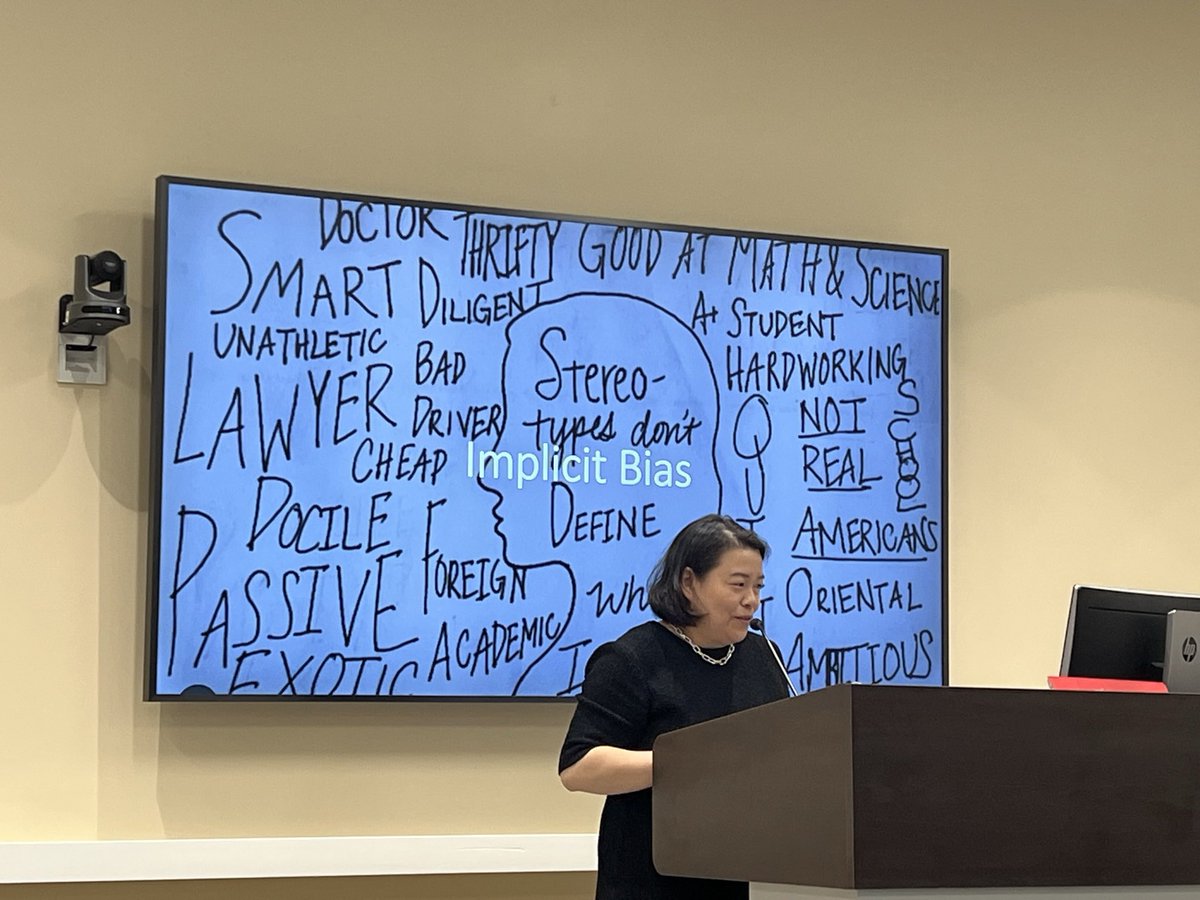 DOCTOR
THRIFTY GOOD AT MATH & SCIENCE
SMART DILIGENT
A+ STUDENT
UNATHLETIC
BAD
DRIVER
HARDWORKING
LAWYER
CHEAP
Stereo-
types don't
Implicit Bias
DEFINE
NOT
REAL
AMERICANS
SCHOOL
DOCILE
PASSIVE
FOREIGN
ORIENTAL
EXOTIC
ACADEMIC
AMBITIOUS
hp